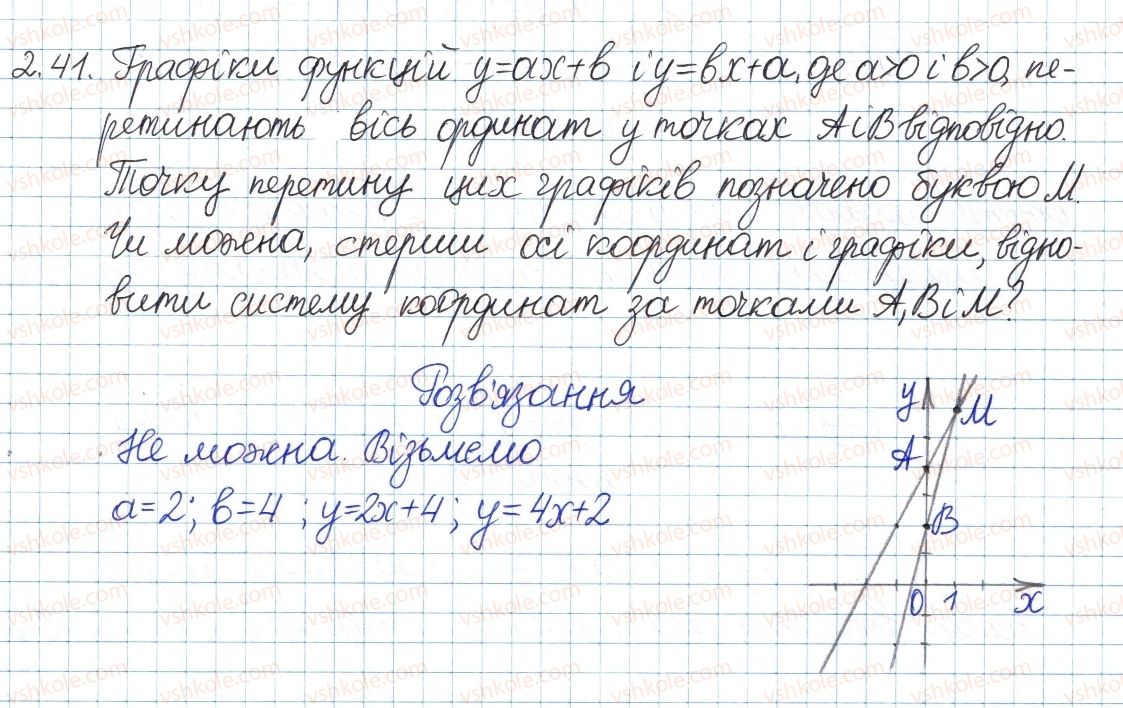 2.41. Графіки функцій y=ax+b і y=bx+a, де a>0 і b>0, пе-
ретинають вісь ординат у точках A і B відповідно.
Точку перетину цих графіків позначено буквою M.
Чи можна, стерши осі координат і графіки, відно-
вити систему координат за точками A, B і M?
Розв'язання
Не можна. Візьмемо
a=2; b=4; y=2x+4; y=4x+2
y
M
A
B
0 1 x
vshkole.com